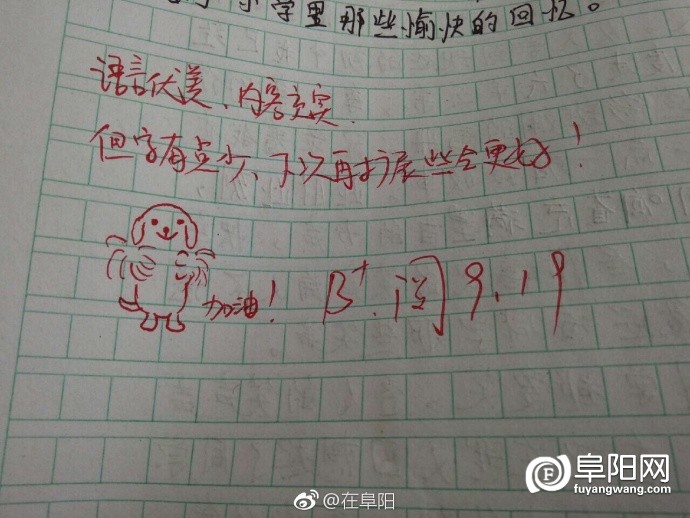 小学里那些愉快的回忆。
语言优美、内容充实
但字有点少、下次再扩展些会更好！
加油！ B+. 阅 9.19
@在阜阳
阜阳网
fuyangwang.com